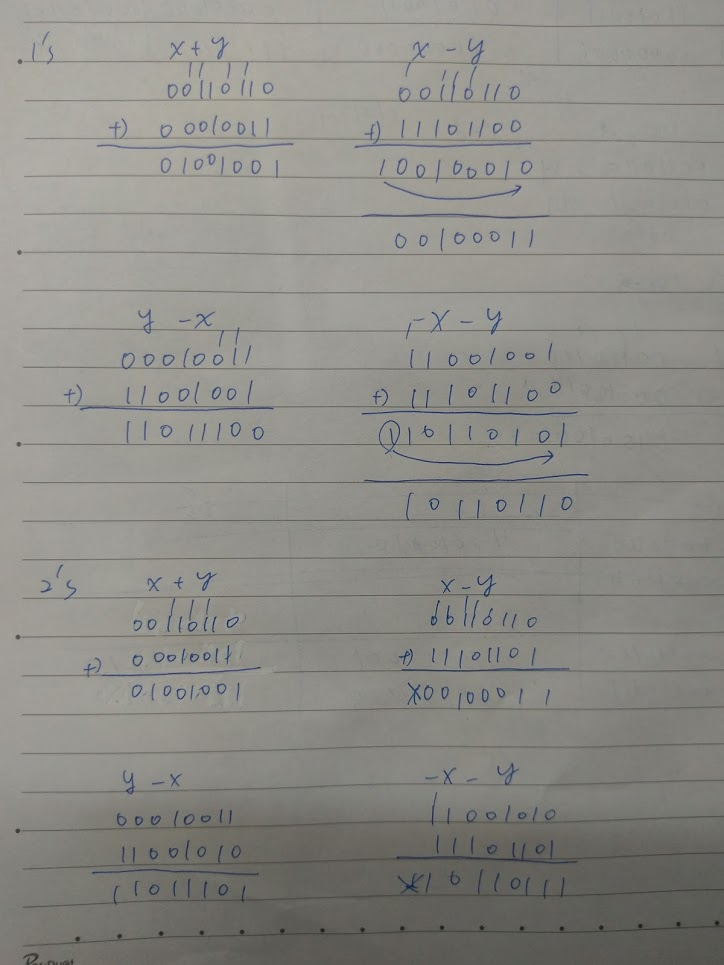 1's x + y x - y
00110110 00110110
+) 00010011 +) 11101100
01001001 100100010
00100011
y - x - x - y
00010011 11001001
+) 11001001 +) 11101100
11011100 110110101
10110110
2's x + y x - y
00110110 00110110
+) 00010011 +) 11101101
01001001 X00100011
y - x - x - y
00010011 11001010
11001010 11101101
11011101 X10110111